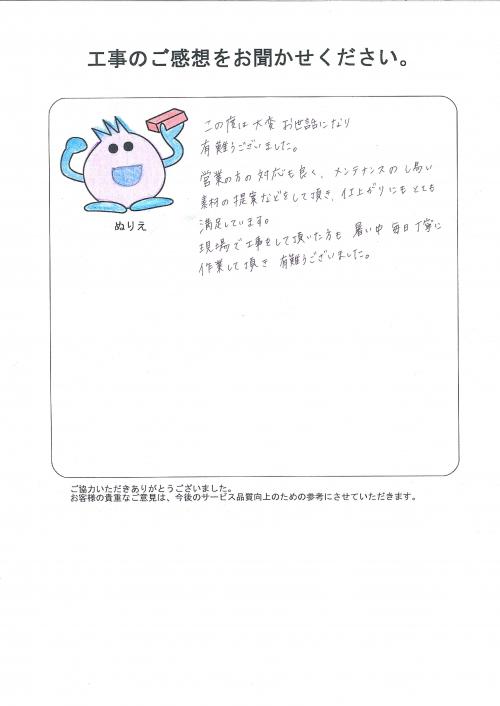 工事のご感想をお聞かせください。
この度は大変お世話になり
有難うございました。
営業の方の対応も良く、メンテナンスのし易い
素材の提案などをして頂き、仕上がりにもとても
満足しています。
現場で工事をして頂いた方も 暑い中 毎日丁寧に
作業して頂き 有難うございました。
ぬりえ
ご協力いただきありがとうございました。
お客様の貴重なご意見は、今後のサービス品質向上のための参考にさせていただきます。